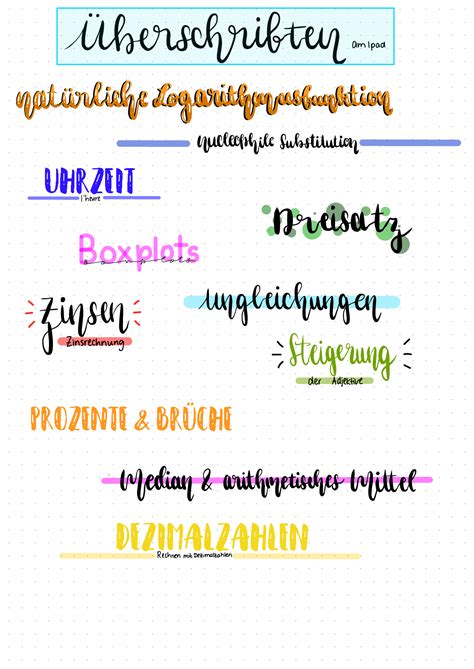 Überschribten am Ipad
natürliche Logarithmusfunktion
nucleophile Substitution
UHRZEIT
l'heure
Dreisatz
Boxplots
boxplots
Zinsen
Zinsrechnung
Ungleichungen
Steigerung
der Adjektive
PROZENTE & BRÜCHE
Median & arithmetisches Mittel
DEZIMALZAHLEN
Rechnen mit Dezimalzahlen